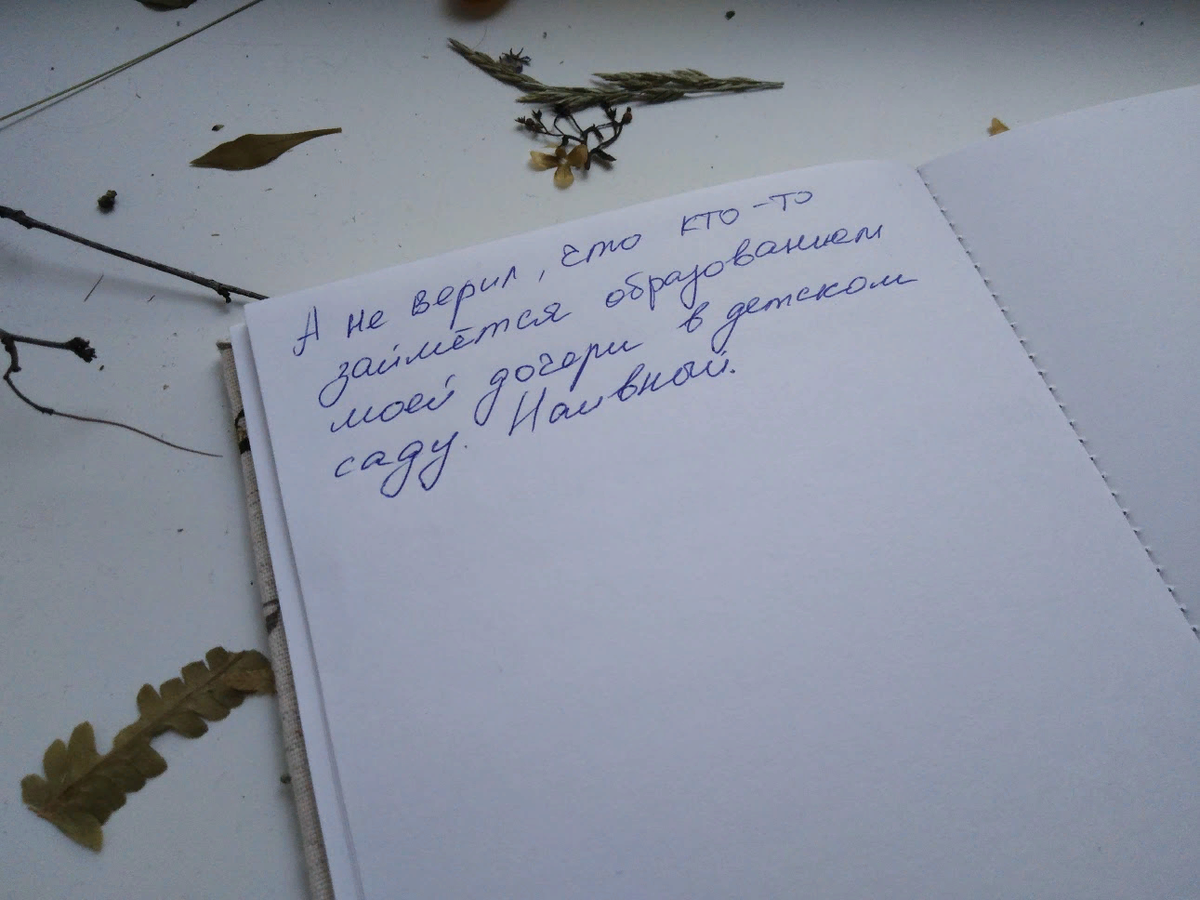 А не верил, что кто-то
займётся образованием
моей дочери в детском
саду. Наивный.